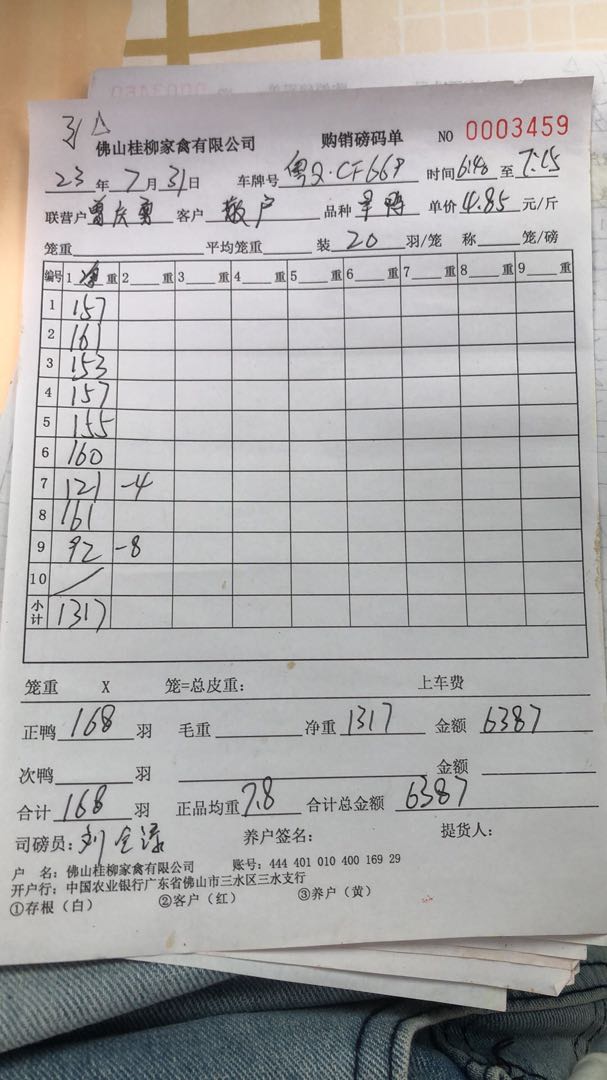 31 △
佛山桂柳家禽有限公司 购销磅码单 NO 0003459
23 年 7 月 31 日 车牌号 粤Q·CF66P 时间 6:48 至 7:15
联营户 曾庆勇 客户 散户 品种 单价 4.85 元/斤
笼重 平均笼重 装 20 羽/笼 称 笼/磅
编号 1 净 重 2 重 3 重 4 重 5 重 6 重 7 重 8 重 9 重
1 157
2 161
3 153
4 157
5 155
6 160
7 121 -4
8 161
9 92 -8
10 /
小计 1317
笼重 X 笼=总皮重: 上车费
正鸭 168 羽 毛重 净重 1317 金额 6387
次鸭 羽 金额
合计 168 羽 正品均重 7.8 合计总金额 6387
司磅员: 刘 养户签名: 提货人:
户 名: 佛山桂柳家禽有限公司 账号: 444 401 010 400 169 29
开户行: 中国农业银行广东省佛山市三水区三水支行
①存根（白） ②客户（红） ③养户（黄）